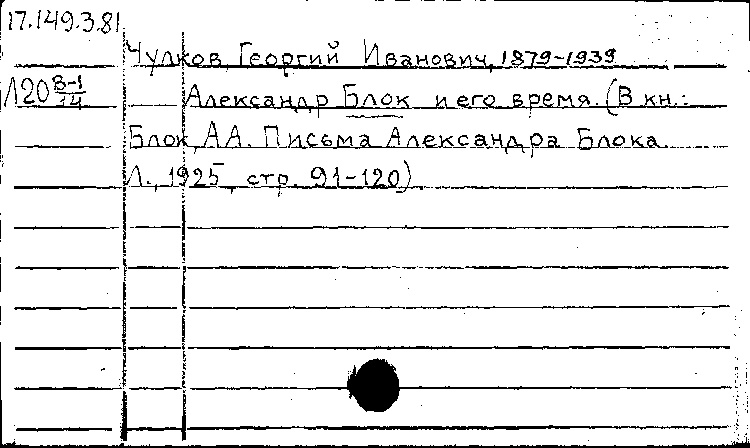 17.149.3.81
Чулков, Георгий Иванович, 1879-1939
Л20 В-1/14 Александр Блок и его время. (В кн.:
Блок, А.А. Письма Александра Блока.
Л., 1925, стр. 91-120).